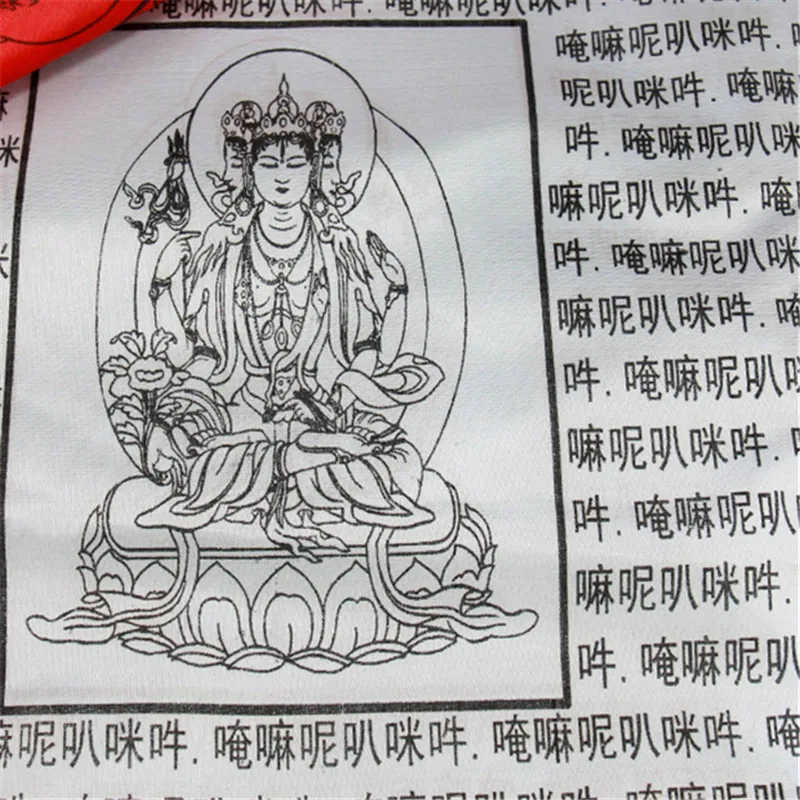 唵嘛呢叭咪吽.唵嘛呢叭咪吽.
唵嘛呢叭咪吽.
呢叭咪吽.唵嘛
吽.唵嘛呢叭咪
嘛呢叭咪吽.唵
吽.唵嘛呢叭咪
嘛呢叭咪吽.唵
吽.唵嘛呢叭
嘛呢叭咪吽.
吽.唵嘛呢叭
嘛呢叭咪吽.
吽.唵嘛呢叭
嘛呢叭咪吽.唵嘛呢叭咪吽.唵嘛呢叭咪吽.唵